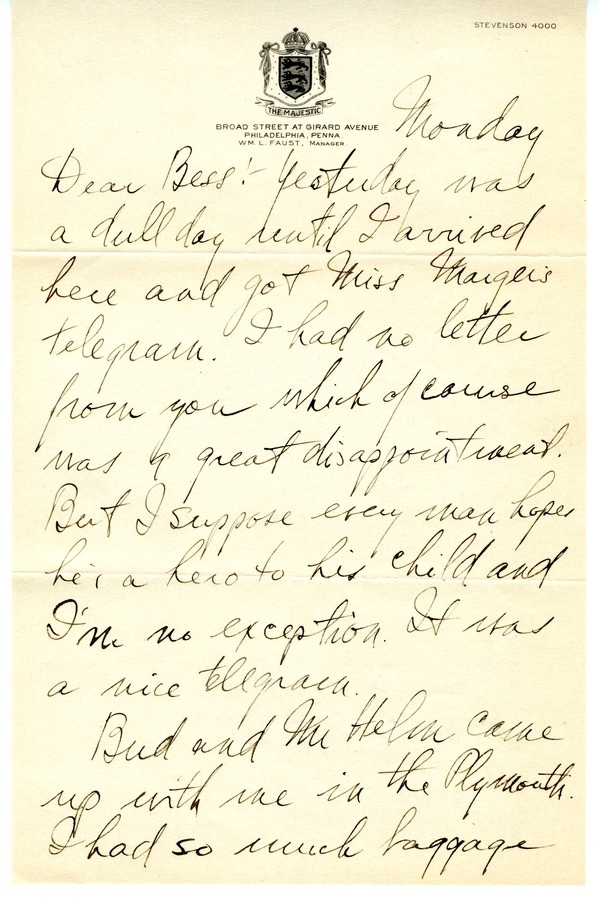 STEVENSON 4000
THE MAJESTIC
BROAD STREET AT GIRARD AVENUE
PHILADELPHIA, PENNA.
WM. L. FAUST, MANAGER.
Monday
Dear Bess:- Yesterday was
a dull day until I arrived
here and got Miss Margie's
telegram. I had no letter
from you which of course
was a great disappointment.
But I suppose every man hopes
he's a hero to his child and
I'm no exception. It was
a nice telegram.
Bud and Mr Helm came
up with me in the Plymouth.
I had so much baggage